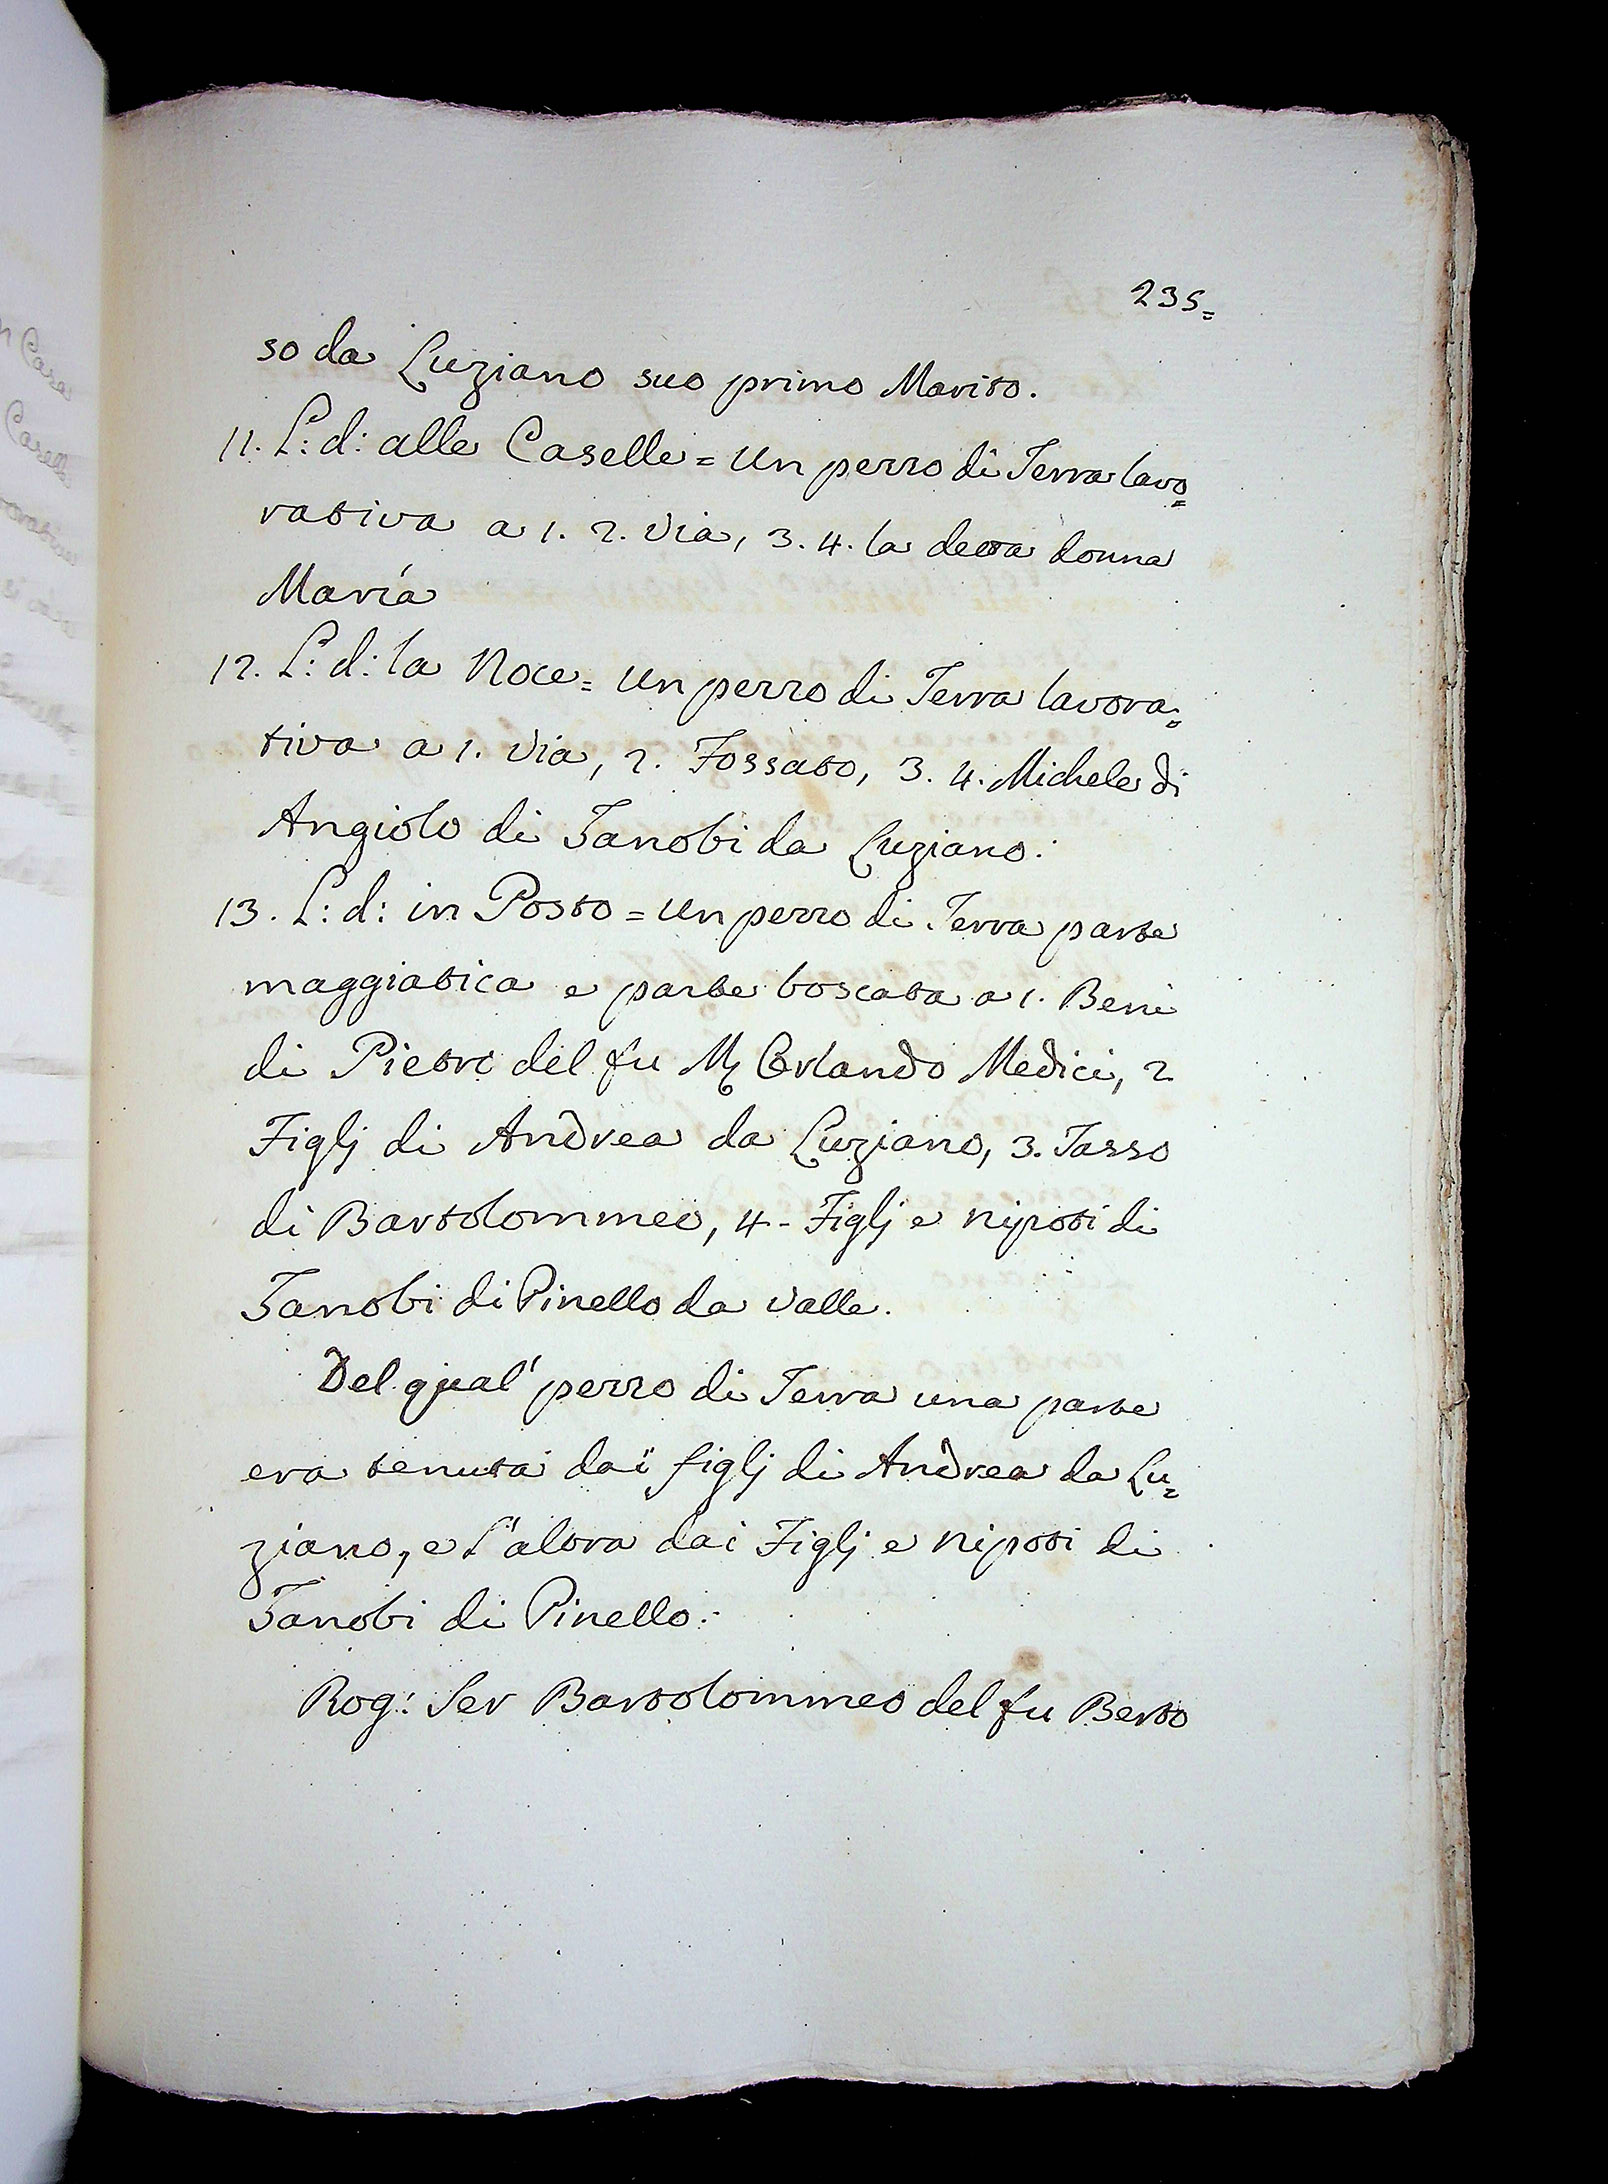 235=
so da Luziano suo primo Marito.
11. L: d: alle Caselle = Un pezzo di Terra lavo=
rativa a 1. 2. Via, 3. 4. la detta donna
Maria
12. L: d: la Noce = Un pezzo di Terra lavora=
tiva a 1. Via, 2. Fossato, 3. 4. Michele di
Angiolo di Zanobi da Luziano.
13. L: d: in Posto = Un pezzo di Terra parte
maggiatica e parte boscata a 1. Beni
di Pietro del fu M Orlando Medici, 2
Figlj di Andrea da Luziano, 3. Tasso
di Bartolommeo, 4 - Figlj e nipoti di
Zanobi di Pinello da Valle.
Del qual' pezzo di Terra una parte
era tenuta dai figlj di Andrea da Lu=
ziano, e l'altra dai Figlj e nipoti di
Zanobi di Pinello.
Rog: Ser Bartolommeo del fu Berto